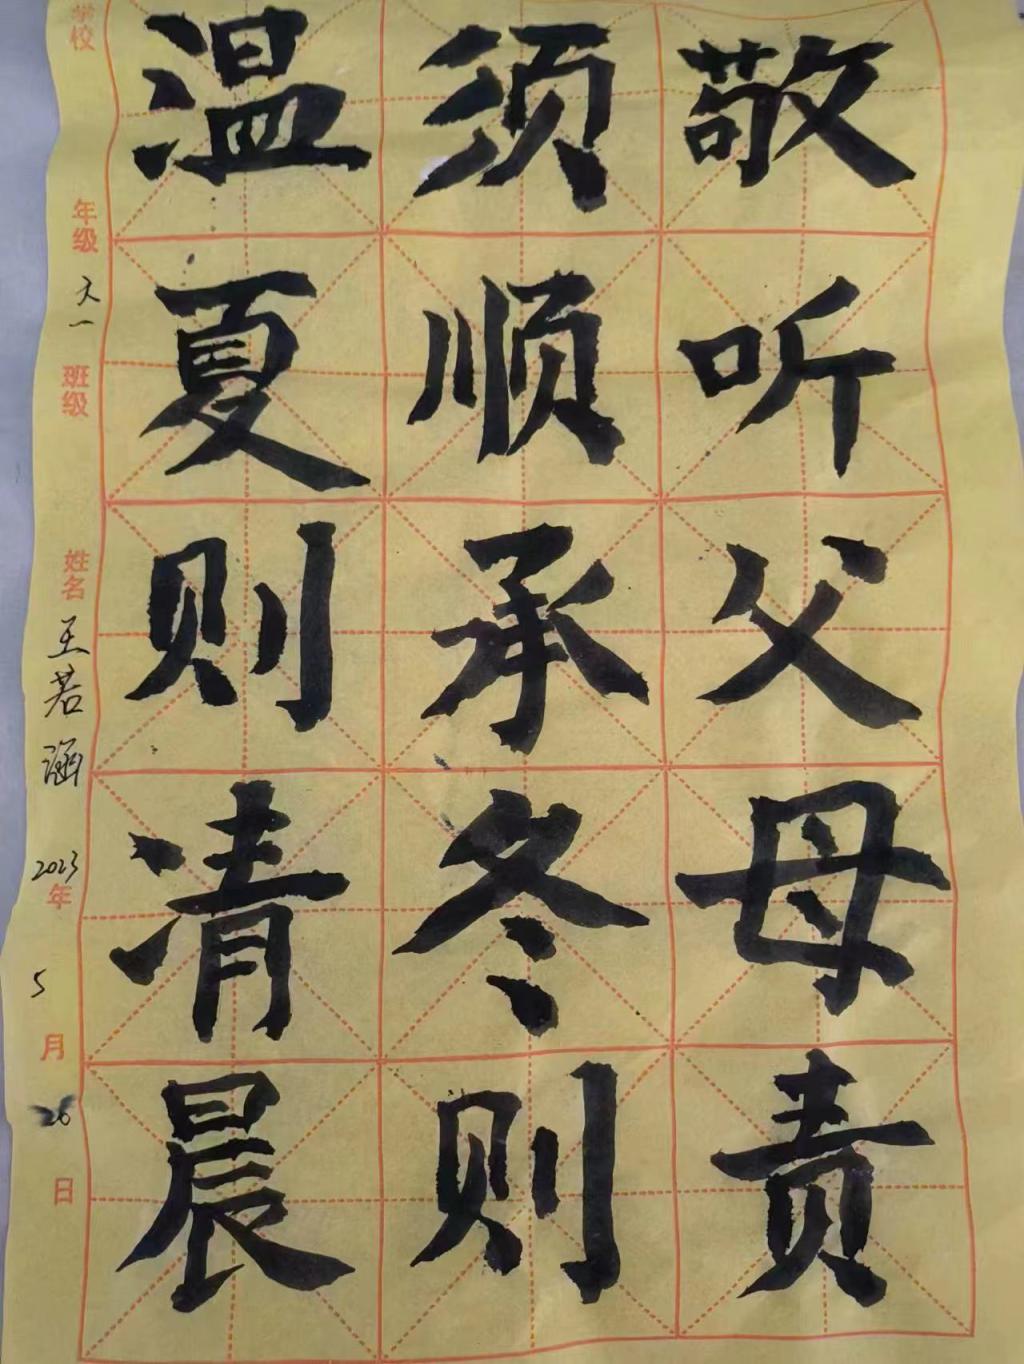 敬听父母责
须顺承冬则
温夏则凊晨
学校
年级 六一
班级
姓名 王若涵
2023年
5月
26日